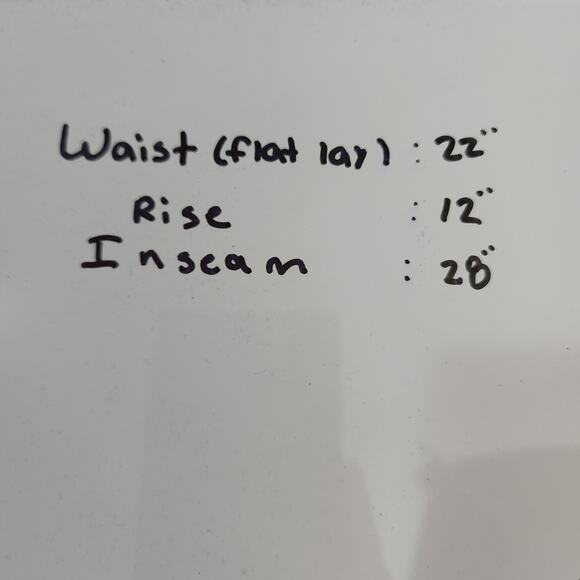 Waist (flat lay) : 22"
Rise : 12"
Inseam : 28"